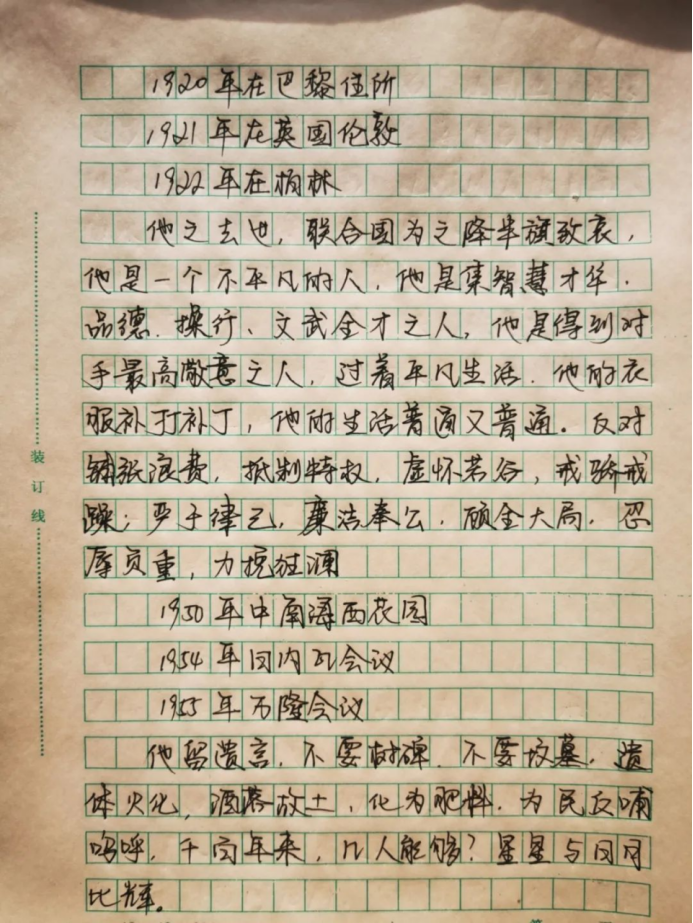 1920年在巴黎住所
1921年在英国伦敦
1922年在柏林
他之去也，联合国为之降半旗致哀，
他是一个不平凡的人，他是集智慧才华．
品德．操行、文武全才之人，他是得到对
手最高敞意之人，过着平凡生活．他的衣
服补丁打补丁，他的生活普通又普通。反对
铺张浪费，抵制特权，虚怀若谷，戒骄戒
躁；严于律己，廉洁奉公．顾全大局，忍
辱负重，力挽狂澜
1950年中南海西花园
1954年日内瓦会议
1955年万隆会议
他留遗言，不要树碑．不要坟墓，遗
体火化，洒落故土，化为肥料．为民反哺
呜呼，千百年来，几人能够？星星与日月
比辉。
装订线